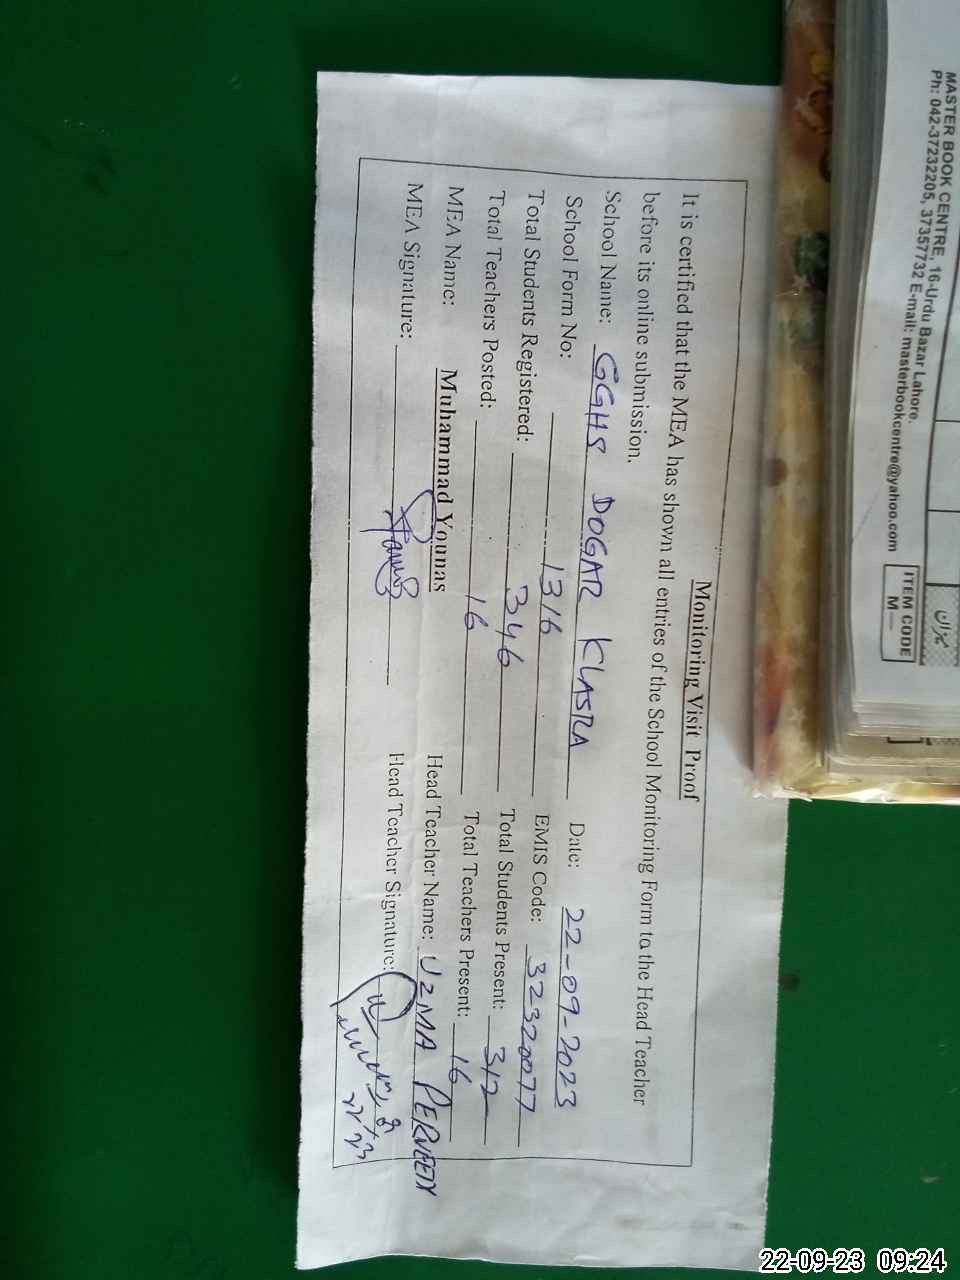 Monitoring Visit Proof
It is certified that the MEA has shown all entries of the School Monitoring Form to the Head Teacher
before its online submission.
School Name: GGHS DOGAR KLASRA Date: 22-09-2023
School Form No: 1316 EMIS Code: 32320077
Total Students Registered: 346 Total Students Present: 312
Total Teachers Posted: 16 Total Teachers Present: 16
MEA Name: Muhammad Younas Head Teacher Name: UZMA PERVEEN
MEA Signature: Head Teacher Signature:
MASTER BOOK CENTRE, 16-Urdu Bazar Lahore.
Ph: 042-37232205, 37357732 E-mail: masterbookcentre@yahoo.com
ITEM CODE
M—
نگران
22-09-23 09:24